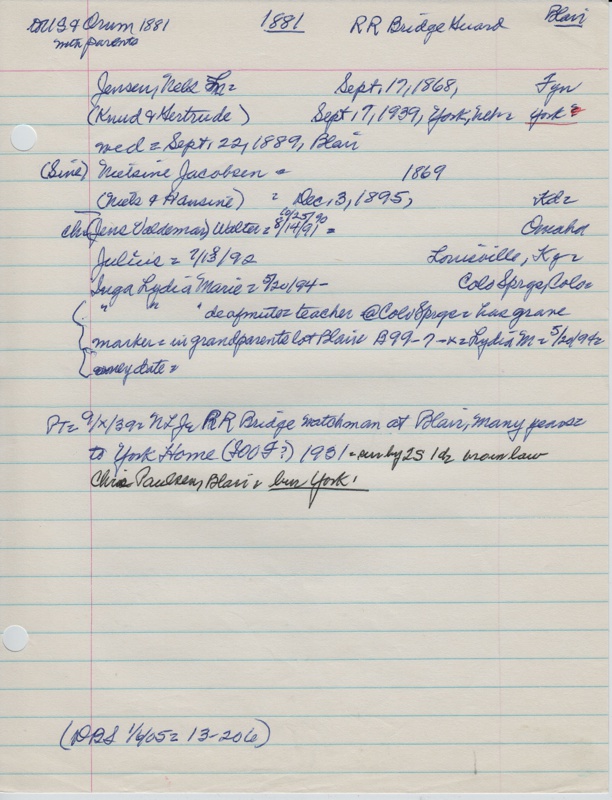 DUS & Orum 1881 1881 RR Bridge Guard Blair
with parents
Jensen, Nels L= Sept, 17, 1868, Fyn
(Knud & Gertrude) Sept, 7, 1939, York, Neb= York?
wed = Sept, 22, 1889, Blair
(Sine) Nielsine Jacobsen = 1869
(Niels & Hansine) = Dec, 3, 1895, Kd=
10/25/90
ch= (Jens Valdemar) Walter = 8/14/91 = Omaha
Julius = 2/18/92 Louisville, Ky=
Inga Lydia Marie = 5/20/94- Colo Sprgs, Colo=
" " " deafmute= teacher @ Colo Sprgs= has grave
marker= in grandparents lot Blair B99-7-x= Lydia M= 5/20/94=
only date=
PT= 9/X/39= NLJ= RR Bridge watchman at Blair, many years=
to York Home (IOOF?) 1931= sur by 2S 1d= bro in law
Chris Paulsen, Blair= bur York!
(DBS 1/6/05= 13-206)